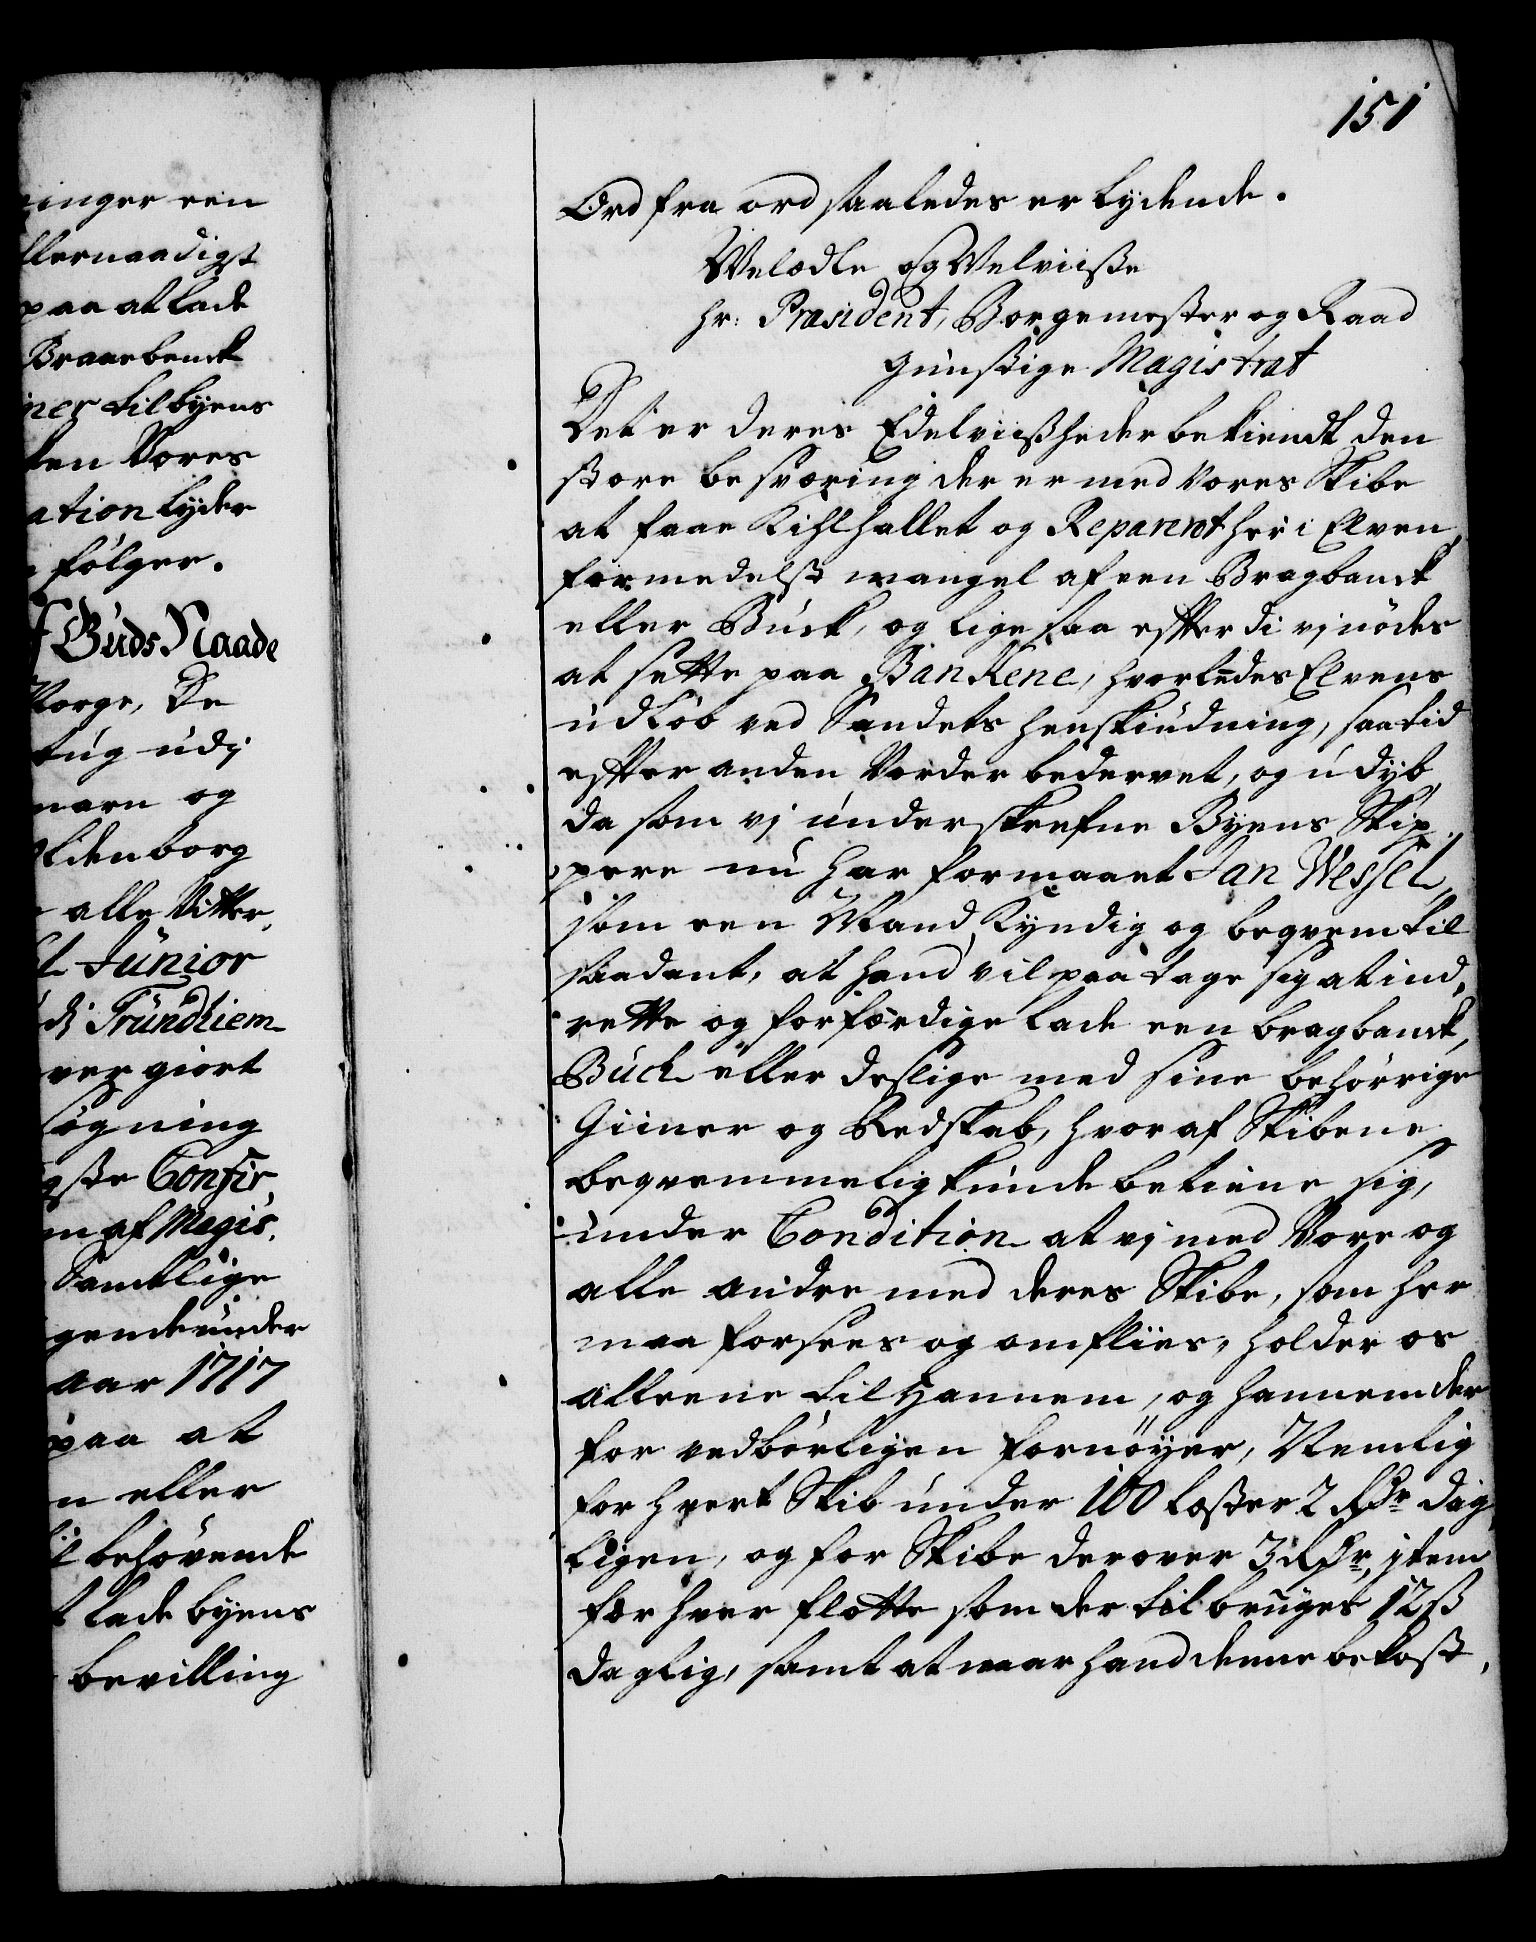 inger een
llernaadigst
paa at lade
Braarbenck
ner til byens
ken Vores
ation lyder
følger.
f Guds Naade
Norge, De
tug udj
marn og
ldenborg
alle Vitter,
l Junior
dj Trundhiem
ver giort
søgning
gste Confir,
m af Magis,
Samtlige
gende under
aar 1717
paa at
n eller
il behøvende
t lade byens
bevilling
151
Ord fra ord saaledes er lydende.
Velædle og Velviisse
hr: Præsident, Borgemester og Raad
gunstige Magistrat
Det er deres Edelviisheder bekiendt den
store besværing der er med vores Skibe
at faae Kihlhallet og Reparerot her i Elven,
formedelst mangel af een Bragbanck
eller Buck, og lige saa efterdi vj nødes
at sette paa Bankene, hvorledes Elvens
udløb ved Sandets henskiudning, saa tid
efter anden Vorder bedervet, og udyb,
da som vj underskrefne Byens Skip,
pere nu har formaaet Jan Wessel,
som een Mand Kyndig og beqvem til
saadant, at hand vil paa tage sig at ind,
rette og forfærdige lade een bragbanck,
Buck eller deslige med sine behørrige
Giiner og Redskab, hvoraf Skibene
beqvemmelig kunde betiene sig,
under Condition at vj med Vore og
alle andre med deres Skibe, som her
maa forsees og omfliies, holder os
alleene til Hannem, og hannem der
for vedbørligen fornøyer, Nemlig
for hvert Skib under 100 Læster 2 Rdr dag,
ligen, og for Skibe derover 3 Rdr, jtem
for hver flotte som der til bruges 12 ß
daglig, samt at naar hand denne bekost,